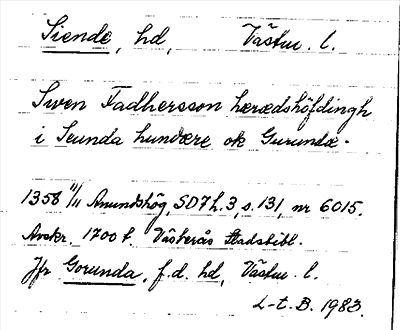 Siende, hd, Västm. l.
Swen Fadhersson hæredshöfdingh
i Seunda hundære ok Gurundæ.
1358 11/11 Anundshög, SD7 h. 3, s. 131, nr 6015.
Avskr. 1700 t. Västerås Stadsbibl.
Jfr Gorunda, f.d. hd, Västm. l.
L-t. B. 1983.